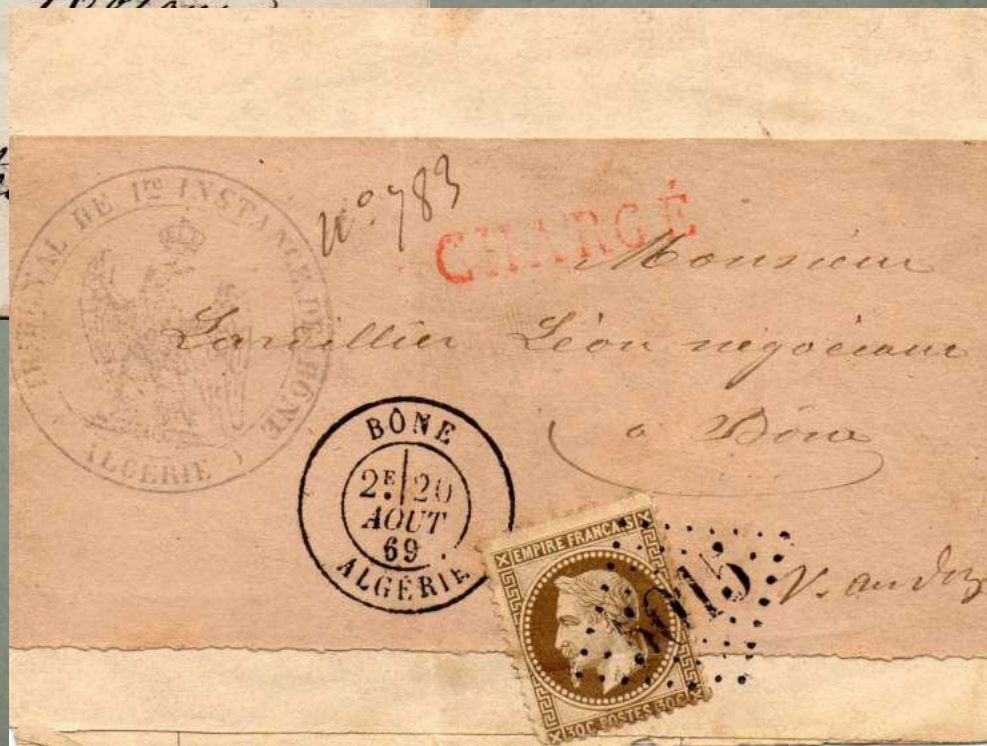 TRIBUNAL DE 1re INSTANCE DE BÔNE
ALGÉRIE
No. 783
CHARGÉ
Monsieur
Léon négociant
a Bône
BÔNE
2E 20
AOUT
69
ALGÉRIE
EMPIRE FRANCAIS
30C POSTES 30C
5015
V. au dos